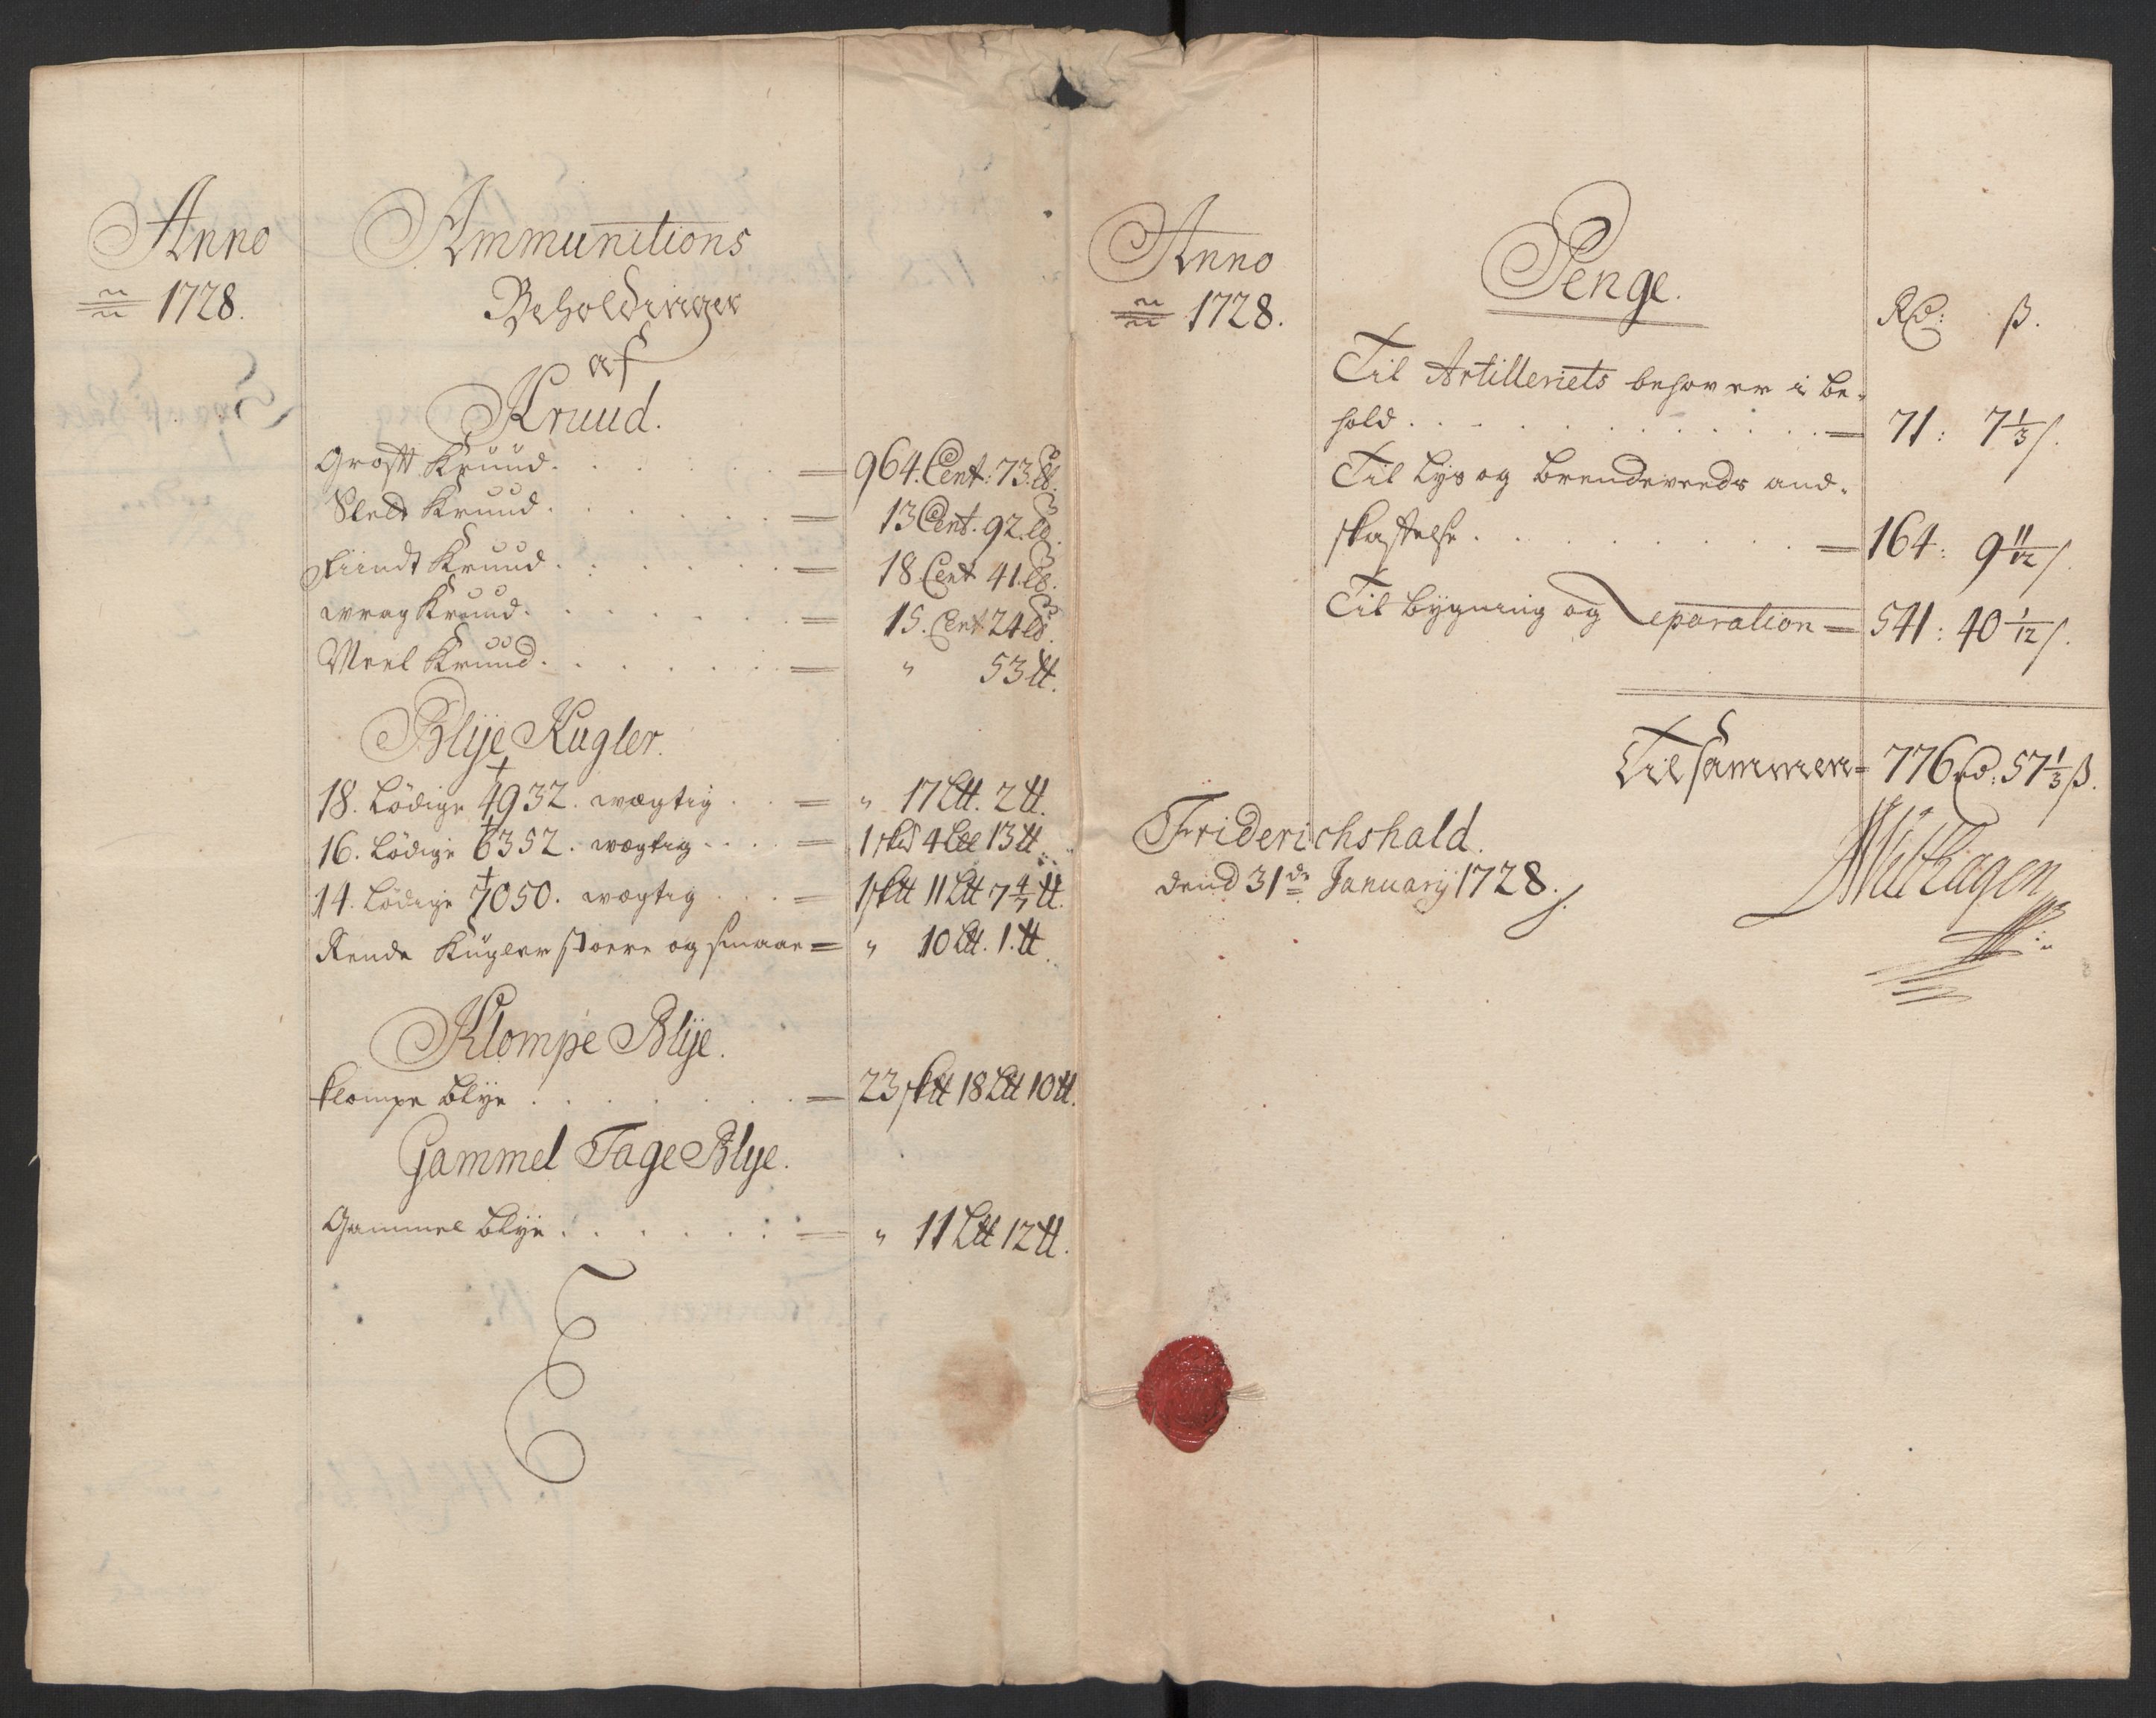 Anno
1728.
Ammunitions
Beholdninger
af
Kruud.
Groft Kruud. = 964. Cent: 73. lb.
Slett Kruud. = 13 Cent. 92. lb.
Fiindt Kruud. = 18 Cent 41. lb.
wrag Kruud. = 15. Cent 24 lb.
Meel Kruud. = " 53 tt.
Blije Kugler.
18. Lödige 4932. wægtig = " 17 Ltt. 2 tt.
16. Lödige 6352. wægtig = 1 skd 4 Ltt 13 tt.
14. Lödige 7050. wægtig = 1 sktt 11 Ltt 7 4/7 tt.
Rende Kugler stoere og smaae = " 10 Ltt. 1. tt.
Klompe Blije.
klompe blye = 23 sktt 18 Ltt 10 tt.
Gammel Tage Blye.
Gammel blye = " 11 Ltt 12 tt.
Anno
1728.
Penge.
Rd: ß.
Til Artilleriets behov er i be-
hold = 71: 7 1/3 ß.
Til Lys og brendeveeds and-
skaffelse = 164: 9 11/12 ß.
Til bygning og Reparation = 541: 40 1/12 ß.
Tilsammen = 776 rd: 57 1/3 ß.
Friderichshald.
dend 31de January 1728.